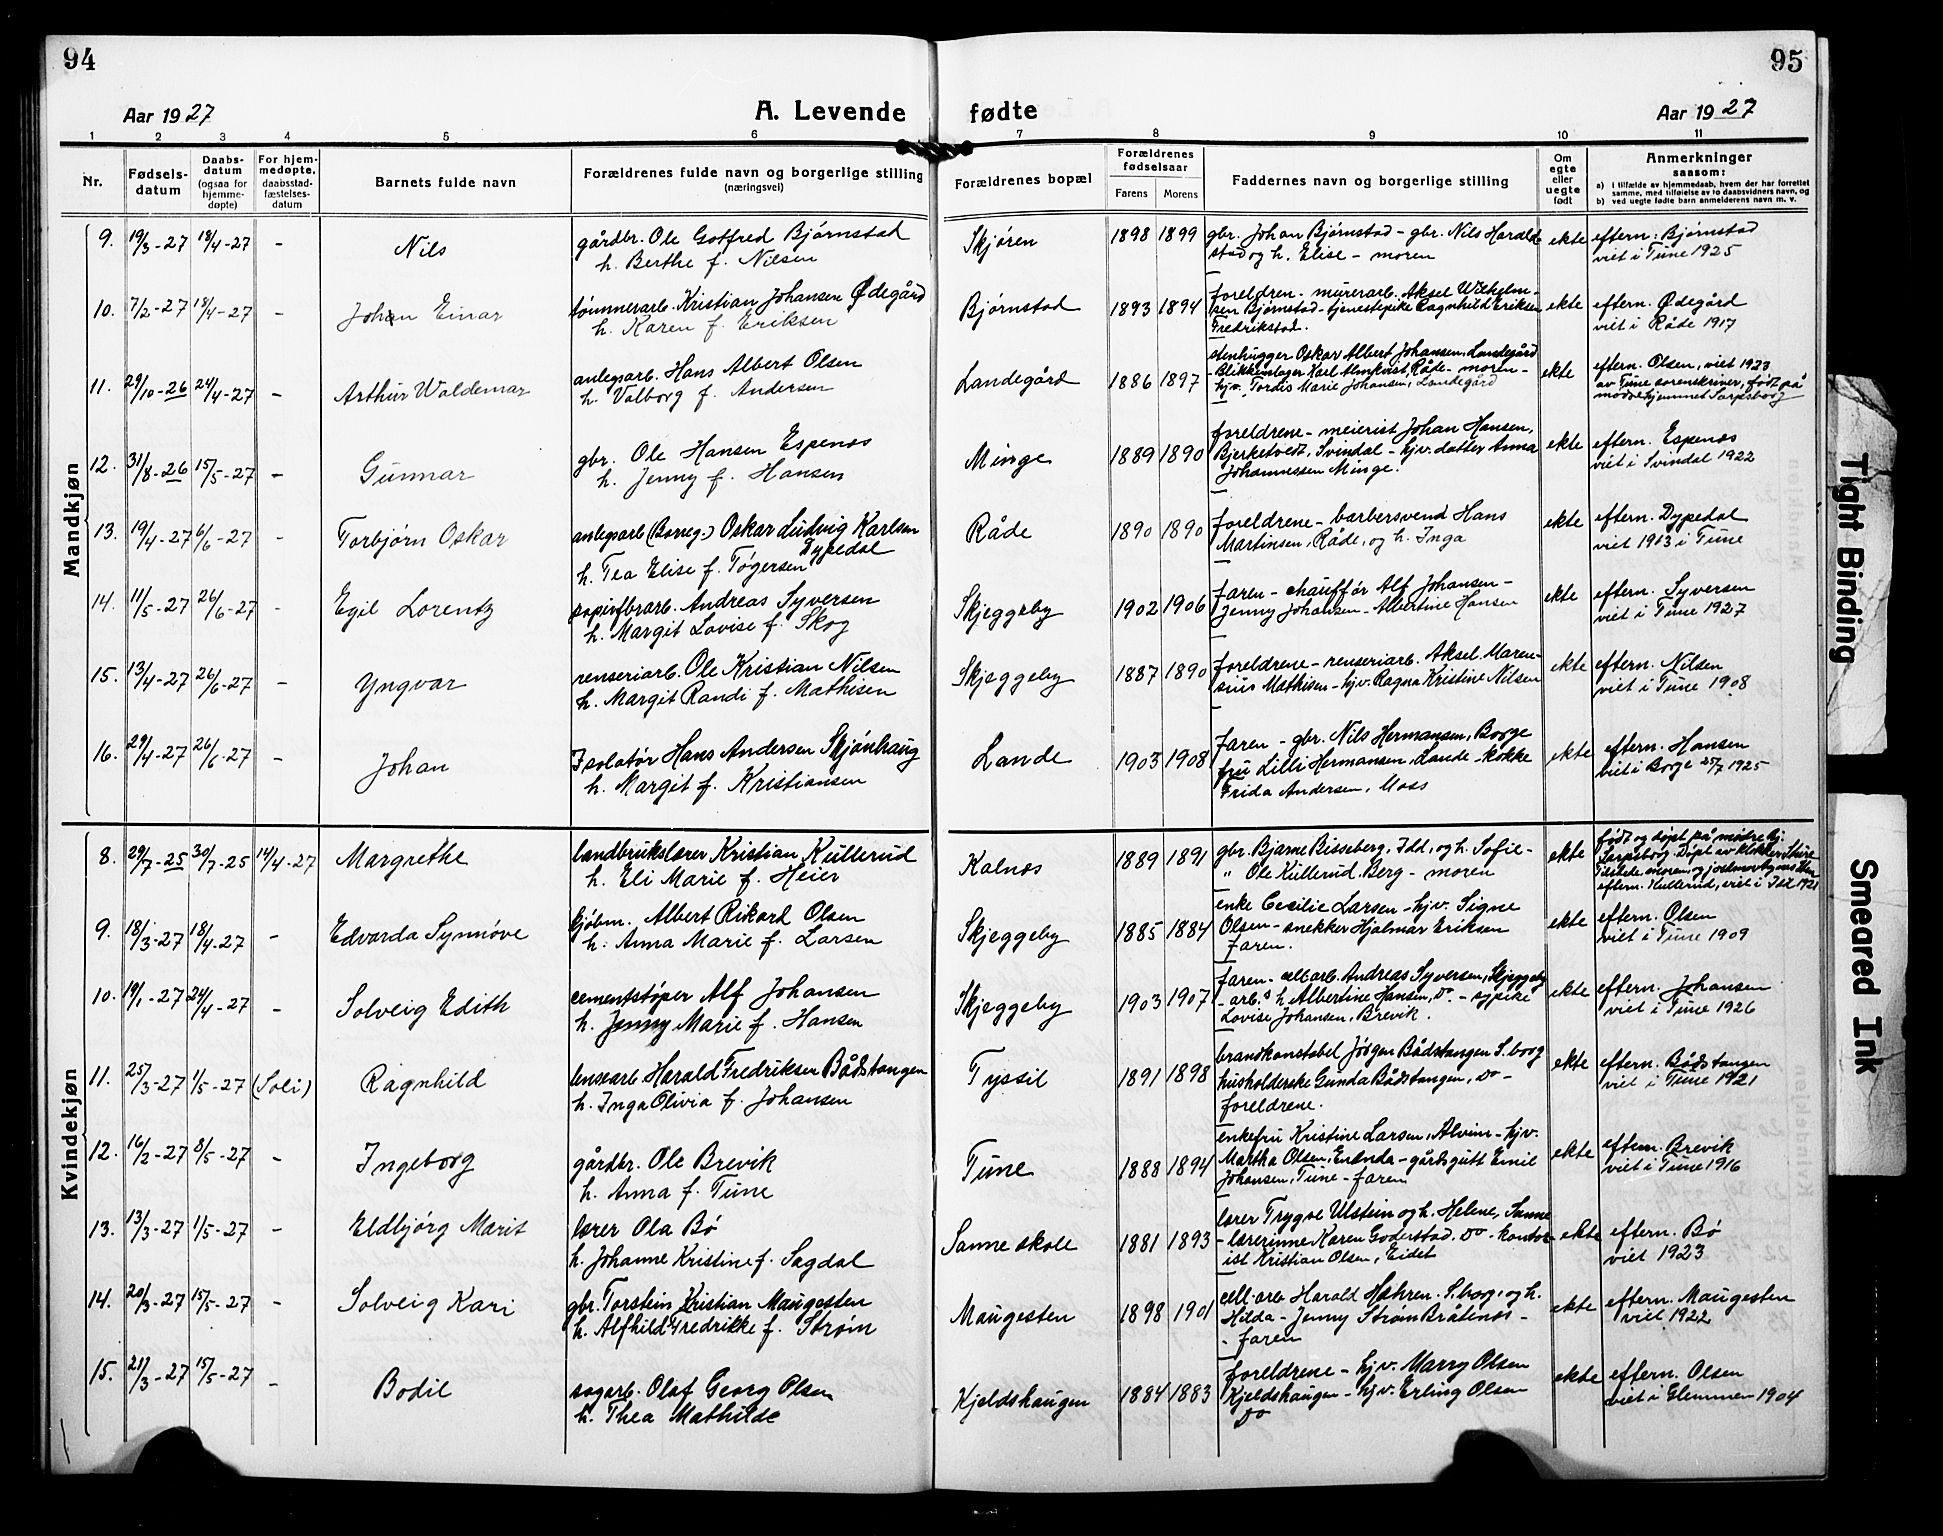 94
95
Aar 1927
A. Levende fødte
Aar 1927
1 2 3 4 5 6 7 8 9 10 11
Nr.
Fødsels-
datum
Daabs-
datum
(ogsaa for
hjemme-
døpte)
For hjem-
medøpte,
daabsstad-
fæstelses-
datum
Barnets fulde navn
Forældrenes fulde navn og borgerlige stilling
(næringsvei)
Forældrenes bopæl
Forældrenes
fødselsaar
Farens Morens
Faddernes navn og borgerlige stilling
Om
egte
eller
uegte
født
Anmerkninger
saasom:
a) i tilfælde av hjemmedaab, hvem der har forrettet
samme, med tilføielse av to daabsvidners navn, og
b) ved uegte fødte barn anmelderens navn m. v.
Mandkjøn
9. 19/3-27 18/4-27 - Nils
gårdbr. Ole Gotfred Bjørnstad
h. Berthe f. Nilsen
Skjøren 1898 1899
gbr. Johan Bjørnstad - gbr. Nils Harald
stad og h. Elise - moren
ekte
eftern: Bjørnstad
viet i Tune 1925
10. 7/2-27 18/4-27 - Johan Einar
tømmerarb. Kristian Johansen Ødegård
h. Karen f. Eriksen
Bjørnstad 1893 1894
foreldren - murerarb. Aksel Wilhelm-
sen Bjørnstad - tjenestepike Ragnhild Eriksen
Fredrikstad.
ekte
eftern. Ødegård
viet i Råde 1917
11. 29/10-26 24/4-27 - Arthur Waldemar
anlegsarb. Hans Albert Olsen
h. Valborg f. Andersen
Landegård 1886 1897
stenhugger Oskar Albert Johansen, Landegård
- Blikkenslager Karl Almkvist, Råde - moren -
hjv. Tordis Marie Johansen, Landegård
ekte
eftern. Olsen, viet 1923
av Tune sorenskriver, født på
mødrehjemmet Sarpsborg
12. 31/8-26 15/5-27 - Gunnar
gbr. Ole Hansen Espenes
h. Jenny f. Hansen
Minge 1889 1890
foreldrene - meierist Johan Hansen,
Bjerketvedt, Svindal - hjv. datter Anna
Johannessen Minge.
ekte
eftern. Espenes
viet i Svindal 1922
13. 19/4-27 6/6-27 - Torbjørn Oskar
anlegsarb (Borreg.) Oskar Ludvig Karlsen
Dypedal
h. Tea Elise f. Tøgersen
Råde 1890 1890
foreldrene - barbersvend Hans
Martinsen, Råde, og h. Inga
ekte
eftern. Dypedal
viet 1913 i Tune
14. 11/5-27 26/6-27 - Egil Lorentz
papirfbrarb. Andreas Syversen
h. Margit Lovise f. Skog
Skjeggeby 1902 1906
faren - chauffør Alf Johansen -
Jenny Johansen - Albertine Hansen
ekte
eftern. Syversen
viet i Tune 1927
15. 13/4-27 26/6-27 - Yngvar
renseriarb. Ole Kristian Nilsen
h. Margit Randi f. Mathisen
Skjeggeby 1887 1890
foreldrene - renseriarb. Aksel Maren-
sius Mathisen - hjv. Ragna Kristine Nilsen
ekte
eftern. Nilsen
viet i Tune 1908
16. 29/4-27 26/6-27 - Johan
Isolatør Hans Andersen Skjønhaug
h. Margit f. Kristiansen
Lande 1903 1908
faren - gbr. Nils Hermansen, Borge
fru Lilli Hermansen, Lande - kokke
Frida Andersen, Moss
ekte
eftern. Hansen
viet i Borge 25/7 1925
Kvindekjøn
8. 29/7-25 30/7-25 14/4-27 Margrethe
landbrukslærer Kristian Kullerud
h. Eli Marie f. Heier
Kalnes 1889 1891
gbr. Bjarne Bisseberg, Idd, og h. Sofie -
" Ole Kullerud, Berg - moren
ekte
født og døpt på mødre hj.
Sarpsborg. Døpt av klokker Sture
Tilstede moren og jordmor
eftern. Kullerud, viet i Idd 1921
9. 18/3-27 18/4-27 - Edvarda Synnøve
kjøbm. Albert Rikard Olsen
h. Anna Marie f. Larsen
Skjeggeby 1885 1884
enke Cecilie Larsen - hjv. Signe
Olsen - snekker Hjalmar Eriksen
faren.
ekte
eftern. Olsen
viet i Tune 1909
10. 19/1-27 24/4-27 - Solveig Edith
cementstøper Alf Johansen
h. Jenny Marie f. Hansen
Skjeggeby 1903 1907
faren - cell arb. Andreas Syversen, Skjeggeby
- arb.s h Albertine Hansen, Do. - sypike
Lovise Johansen, Brevik.
ekte
eftern. Johansen
viet i Tune 1926
11. 25/3-27 1/5-27 (Soli) Ragnhild
lensearb. Harald Fredriksen Bådstangen
h. Inga Olivia f. Johansen
Tyssil 1891 1898
brandkonstabel Jørgen Bådstangen S.borg
husholderske Gunda Bådstangen, Do -
foreldrene.
ekte
eftern. Bådstangen
viet i Tune 1921
12. 16/2-27 8/5-27 - Ingeborg
gårdbr. Ole Brevik
h. Anna f. Tune
Tune 1888 1894
enkefru Kristine Larsen, Alvim - hjv.
Martha Olsen, Enenda - gårdsgutt Emil
Johansen, Tune - faren
ekte
eftern. Brevik
viet i Tune 1916
13. 13/3-27 1/5-27 - Eldbjørg Marit
lærer Ola Bø
h. Johanne Kristine f. Sagdal
Sanne skole 1881 1893
lærer Trygve Ulstein og h. Helene, Sanne
- lærerinne Karen Goderstad. Do - kontor-
ist Kristian Olsen, Eidet
ekte
eftern. Bø
viet 1923
14. 20/3-27 15/5-27 - Solveig Kari
gbr. Torstein Kristian Maugesten
h. Alfhild Fredrikke f. Strøm
Maugesten 1898 1901
cell-arb Harald Hæhren. S.borg, og h.
Hilda - Jenny Strøm Bråtenes -
- faren
ekte
eftern. Maugesten
viet 1922
15. 21/3-27 15/5-27 - Bodil
sagarb. Olaf Georg Olsen
h. Thea Mathilde
Kjeldshaugen 1884 1883
foreldrene - hjv. Marry Olsen
Kjeldshaugen - hjv. Erling Olsen
Do
ekte
eftern. Olsen
viet i Glemmen 1904
Tight Binding
Smeared Ink